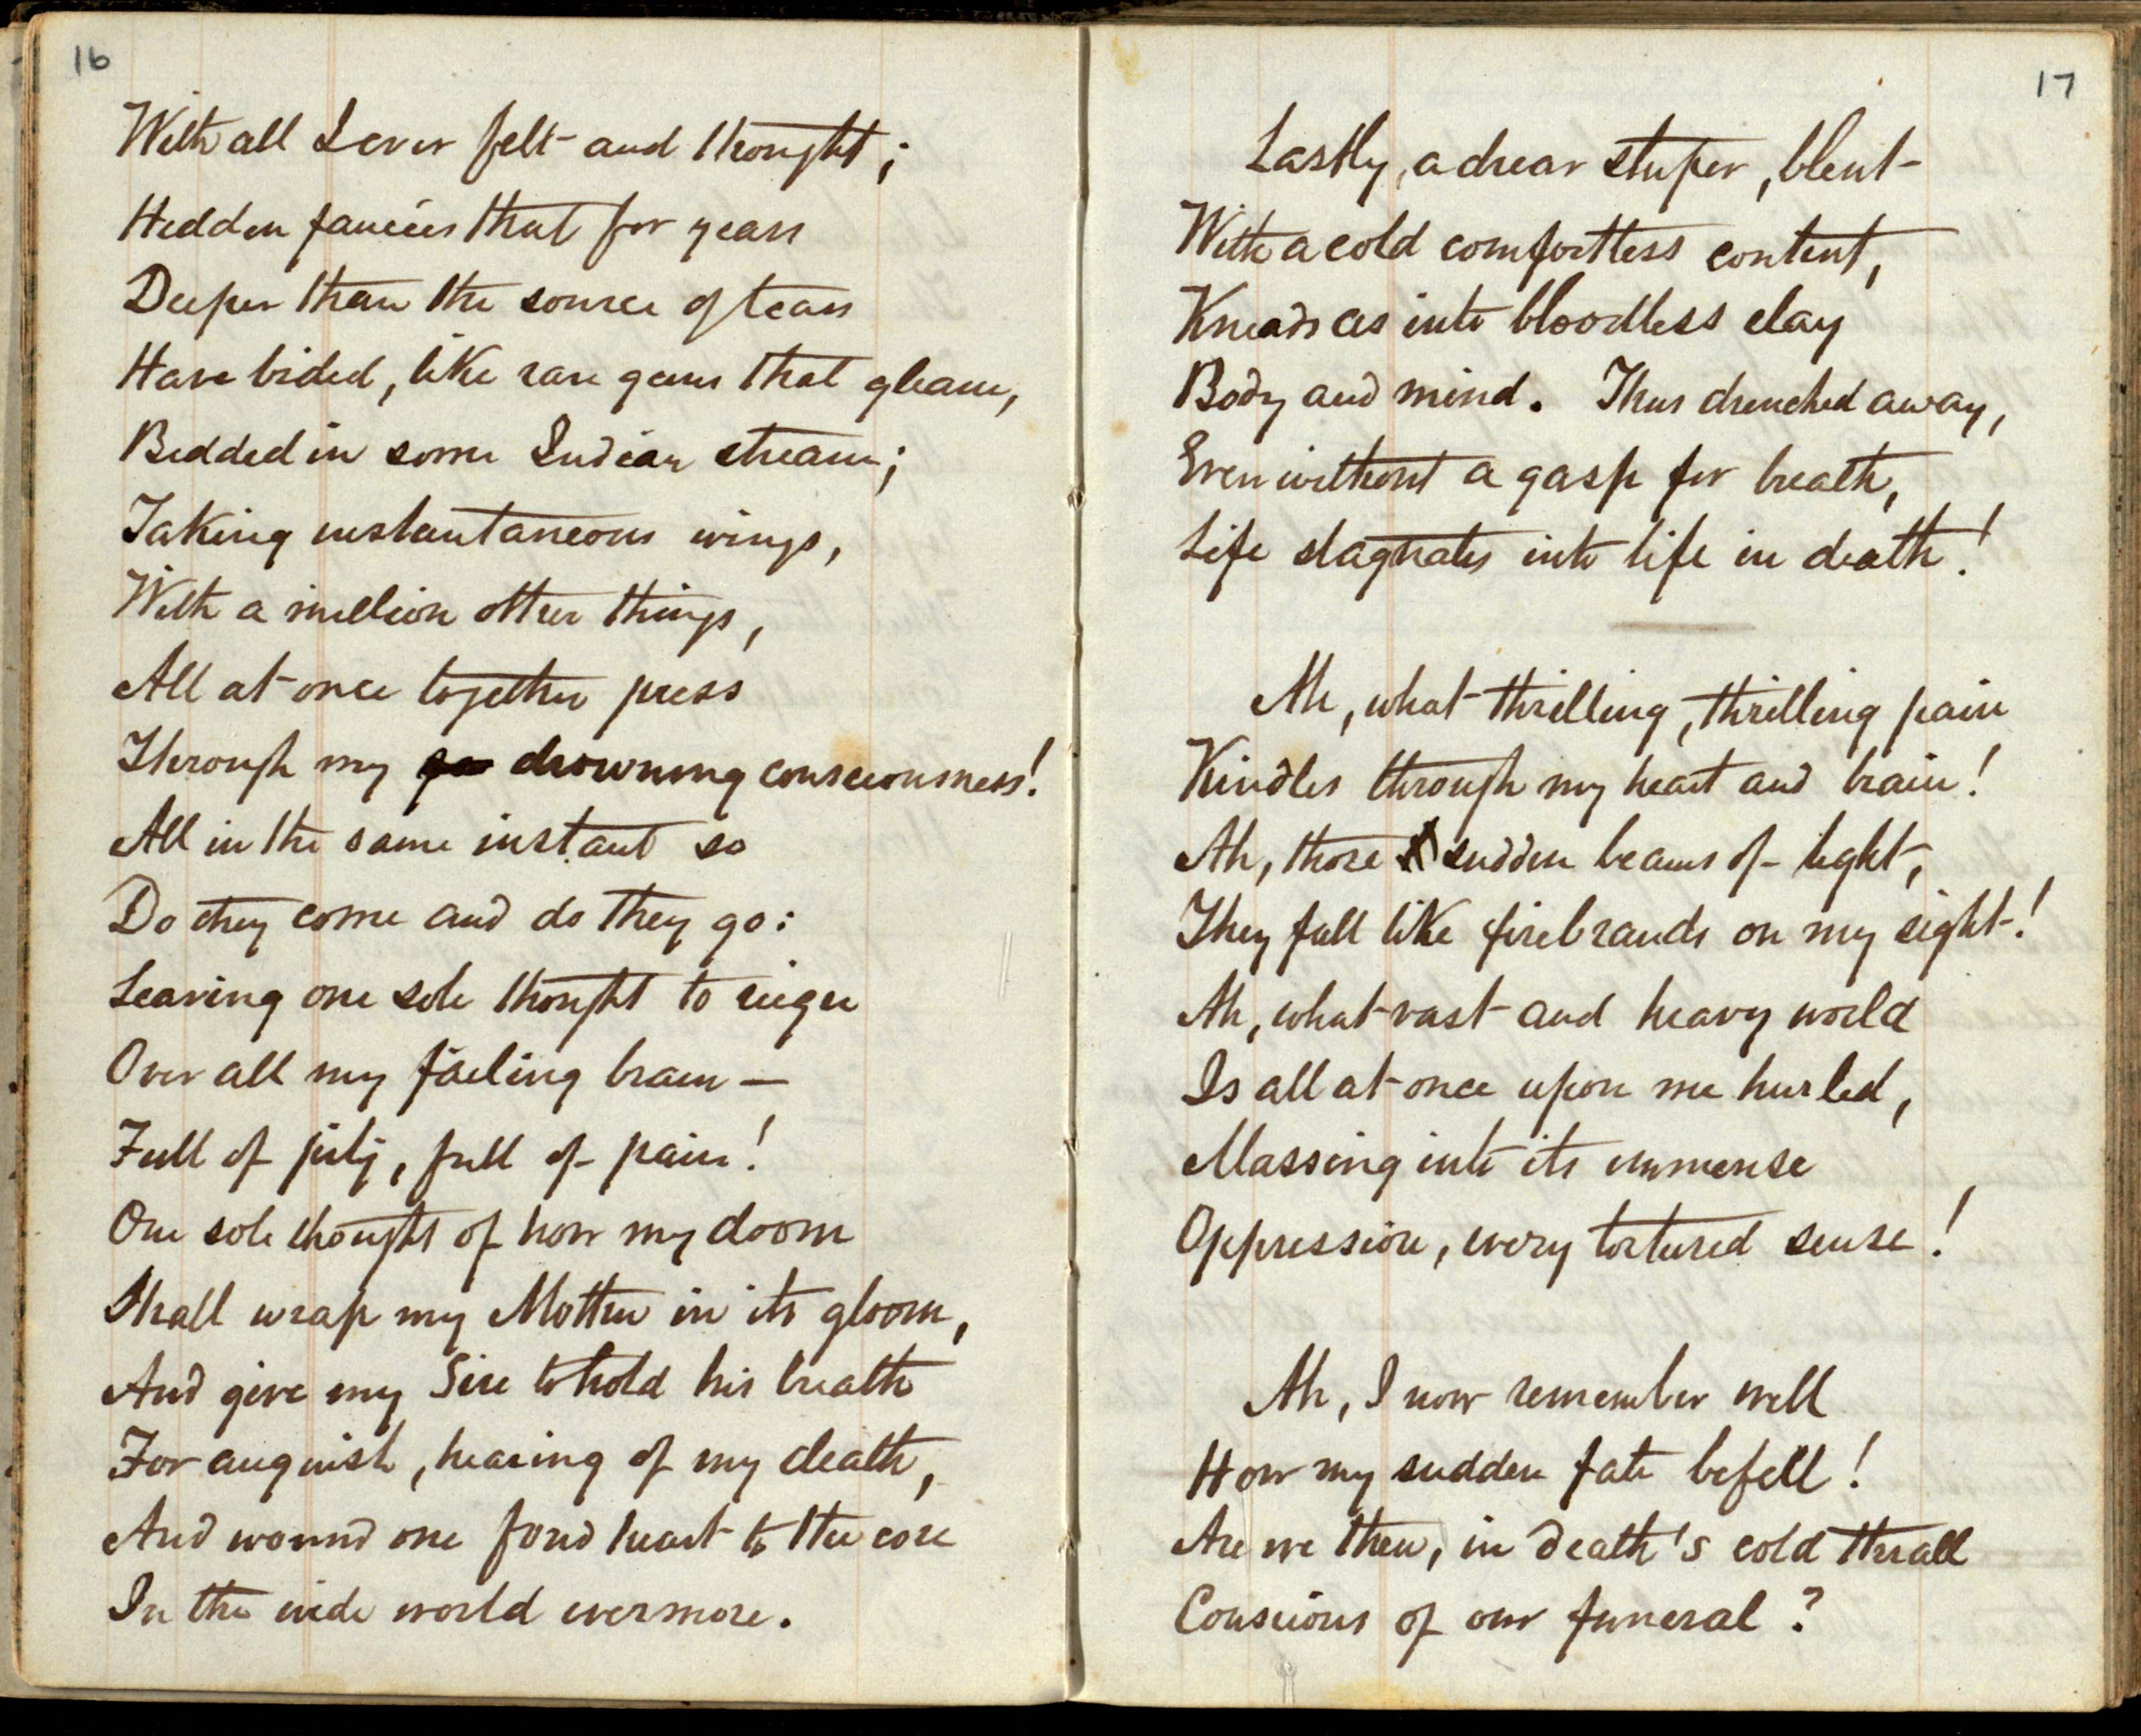 16
With all I ever felt and thought;
Hidden fancies that for years
Deeper than the source of tears
Have bided, like rare gems that gleam,
Bedded in some Indian stream;
Taking instantaneous wings,
With a million other things,
All at once together press
Through my drowning consciousness!
All in the same instant so
Do they come and do they go:
Leaving one sole thought to reign
Over all my failing brain —
Full of pity, full of pain!
One sole thought of how my doom
Shall wrap my Mother in its gloom,
And give my Sire to hold his breath
For anguish, hearing of my death,
And wound one fond heart to the core
In the wide world evermore.
17
Lastly, a drear stupor, blent
With a cold comfortless content,
Kneads as into bloodless clay
Body and mind. Thus drenched away,
Even without a gasp for breath,
Life stagnates into life in death!
Ah, what thrilling, thrilling pain
Kindles through my heart and brain!
Ah, those sudden beams of light,
They fall like firebrands on my sight!
Ah, what vast and heavy world
Is all at once upon me hurled,
Massing into its immense
Oppression, every tortured sense!
Ah, I now remember well
How my sudden fate befell!
Are we then, in death's cold thrall
Conscious of our funeral?